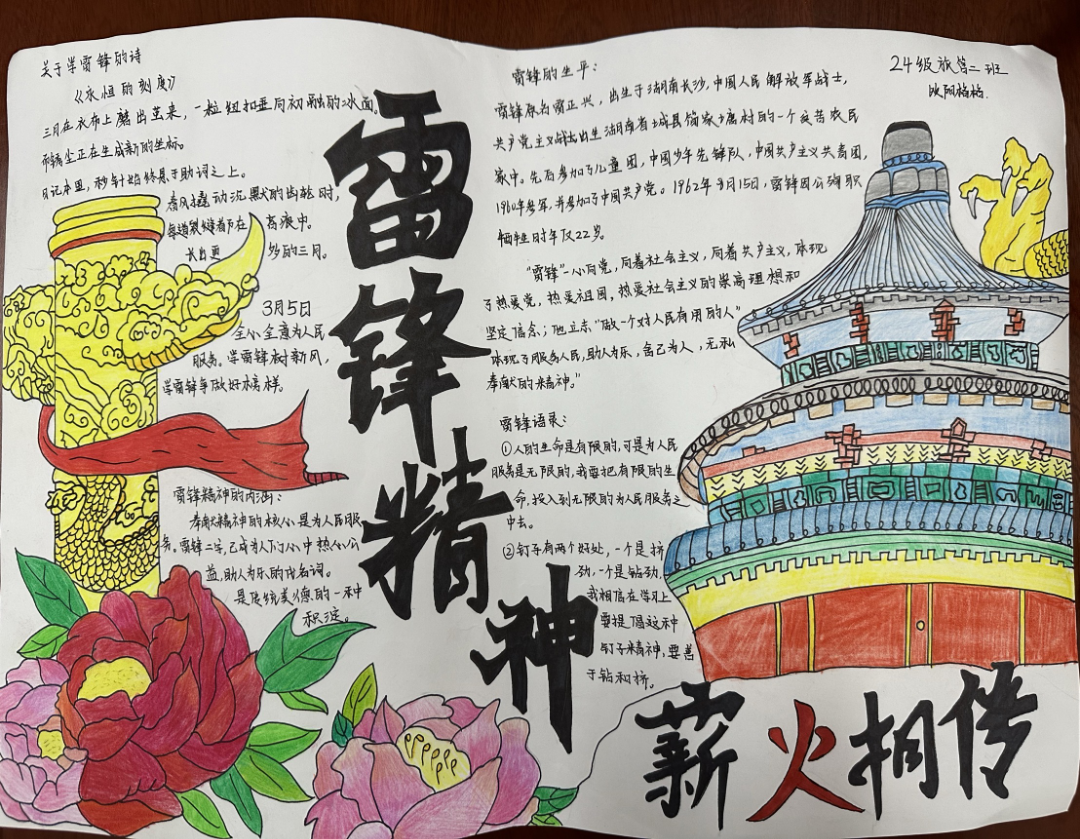 关于学雷锋的诗
《永恒的刻度》
三月在衣布上磨出茧来，一粒纽扣垂向初融的冰面。
而锈尘正在生成新的坐标。
日记本里，秒针始终悬于助词之上。
春风撬动沉默的齿轮时，
每道裂缝都在 苔痕中。
长出更 多的三月。
3月5日
全心全意为人民
服务。学雷锋树新风，
学雷锋争做好榜样。
雷锋精神的内涵：
奉献精神的核心是为人民服
务。雷锋二字，已成为人们心中热心公
益，助人为乐的代名词。
是传统美德的一种
积淀。
雷锋精神
雷锋的生平：
雷锋原名雷正兴，出生于湖南长沙，中国人民解放军战士，
共产党主义战士出生湖南省城县简家塘村的一个贫苦农民
家中。先后参加了儿童团，中国少年先锋队，中国共产主义共青团，
1960年参军，并参加了中国共产党。1962年8月15日，雷锋因公殉职
牺牲时年仅22岁。
“雷锋”一心向党，向着社会主义，向着共产主义，体现
了热爱党，热爱祖国，热爱社会主义的崇高理想和
坚定信念；他立志“做一个对人民有用的人”
体现了服务人民，助人为乐，舍己为人，无私
奉献的精神。”
雷锋语录：
①人的生命是有限的，可是为人民
服务是无限的，我要把有限的生
命，投入到无限的为人民服务之
中去。
②钉子有两个好处，一个是挤
劲，一个是钻劲，
我相信在学习上
要提倡这种
钉子精神，要善
于钻和挤。
24级旅管二班
欧阳格格
薪火相传